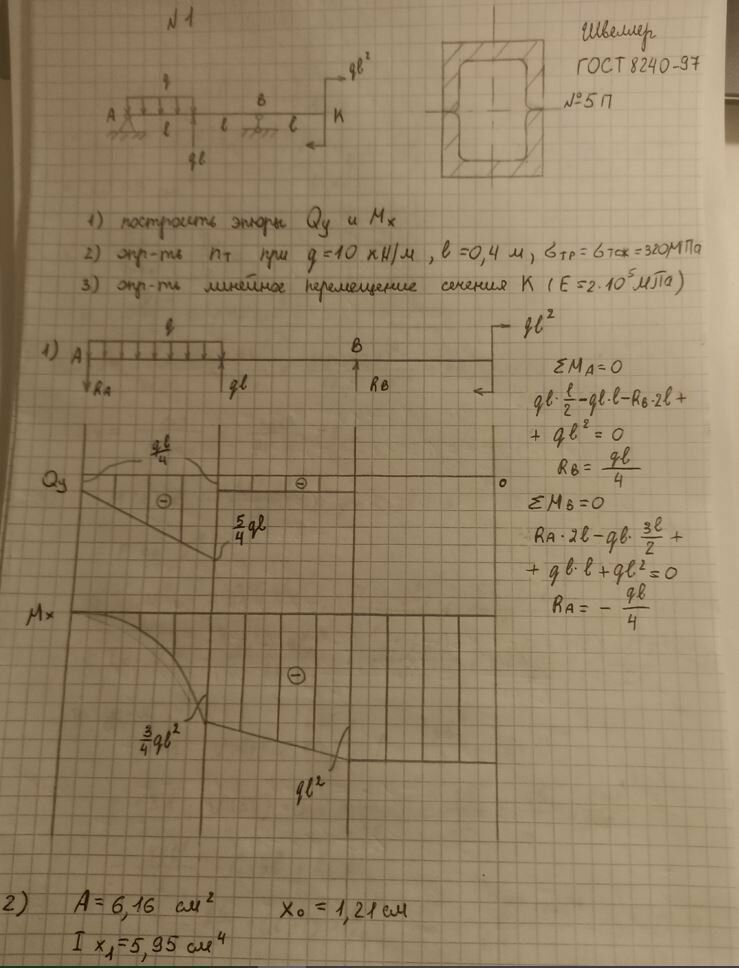 N1
Швеллер
ГОСТ 8240-97
№5П
q
ql²
A
B
K
l
l
l
ql
1) построить эпюры Qy и Mx
2) опр-ть nт при q=10 кН/м, l=0,4 м, σтр=σтсж=320МПа
3) опр-ть линейное перемещение сечения K (E=2·10⁵МПа)
1)
q
A
B
ql²
RA
ql
RB
ΣMA=0
ql·l/2-ql·l-RB·2l+
+ql²=0
RB=ql/4
ΣMB=0
RA·2l-ql·3l/2+
+ql·l+ql²=0
RA=-ql/4
Qy
ql/4
⊖
⊖
5/4ql
0
Mx
⊖
3/4ql²
ql²
2) A=6,16 см² x₀=1,21см
I x₁=5,95 см⁴